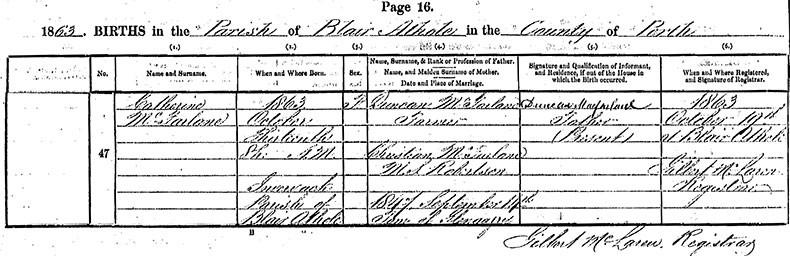 Page 16.
1863. BIRTHS in the Parish of Blair Athole in the County of Perth
(1.) (2.) (3.) (4.) (5.) (6.)
No.
Name and Surname.
When and Where Born.
Sex.
Name, Surname, & Rank or Profession of Father.
Name, and Maiden Surname of Mother.
Date and Place of Marriage.
Signature and Qualification of Informant,
and Residence, if out of the House in
which the Birth occurred.
When and Where Registered,
and Signature of Registrar.
47
Catherine
McFarlane
1863
October
5h. A.M.
Parish of
Blair Athole
F
Duncan McFarlane
Farmer
Christian McFarlane
M.S. Robertson
1847 September 14th
Duncan Macfarlane
Father
(Present)
1863
October 19th
at Blair Athole
Gilbert McLaren
Registrar
B
Gilbert McLaren, Registrar